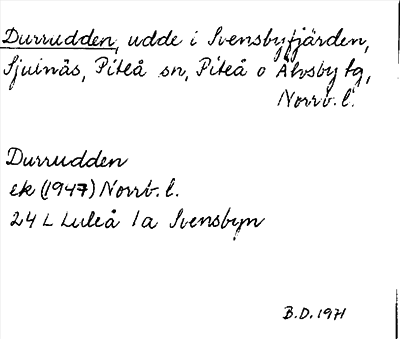 Durrudden, udde i Svensbyfjärden,
Sjulnäs, Piteå sn, Piteå o Älvsby tg,
Norrb. l.
Durrudden
ek (1947) Norrb. l.
24 L Luleå 1a Svensbyn
B.D. 1971